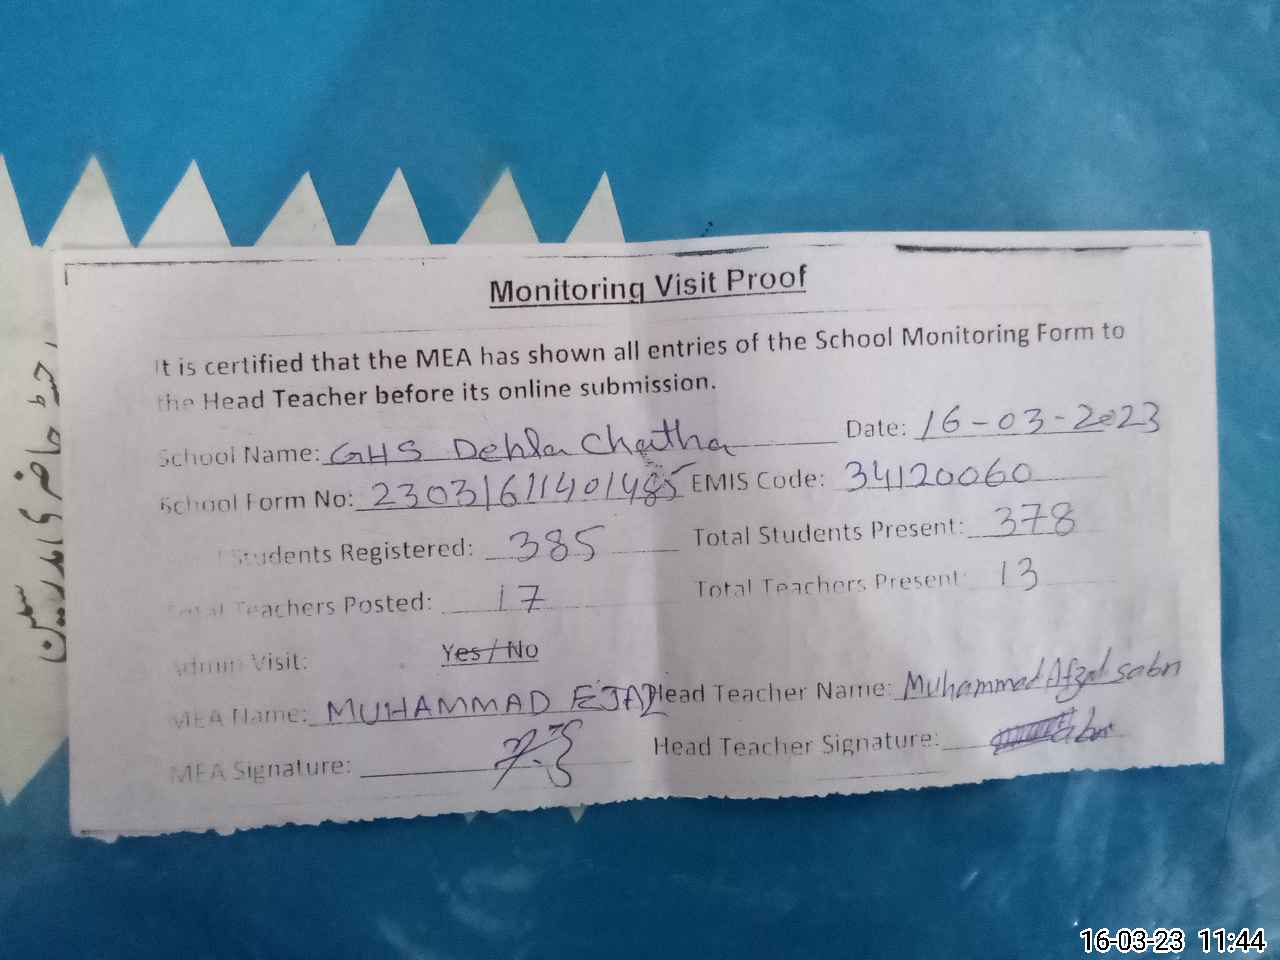 Monitoring Visit Proof
It is certified that the MEA has shown all entries of the School Monitoring Form to
the Head Teacher before its online submission.
School Name: GHS Dehla Chatha Date: 16-03-2023
School Form No: 23031611401485 EMIS Code: 34120060
Students Registered: 385 Total Students Present: 378
Total Teachers Posted: 17 Total Teachers Present: 13
Admin Visit: Yes / No
MEA Name: MUHAMMAD EJAZ Head Teacher Name: Muhammad Afzal Sabri
MEA Signature: Head Teacher Signature:
16-03-23 11:44